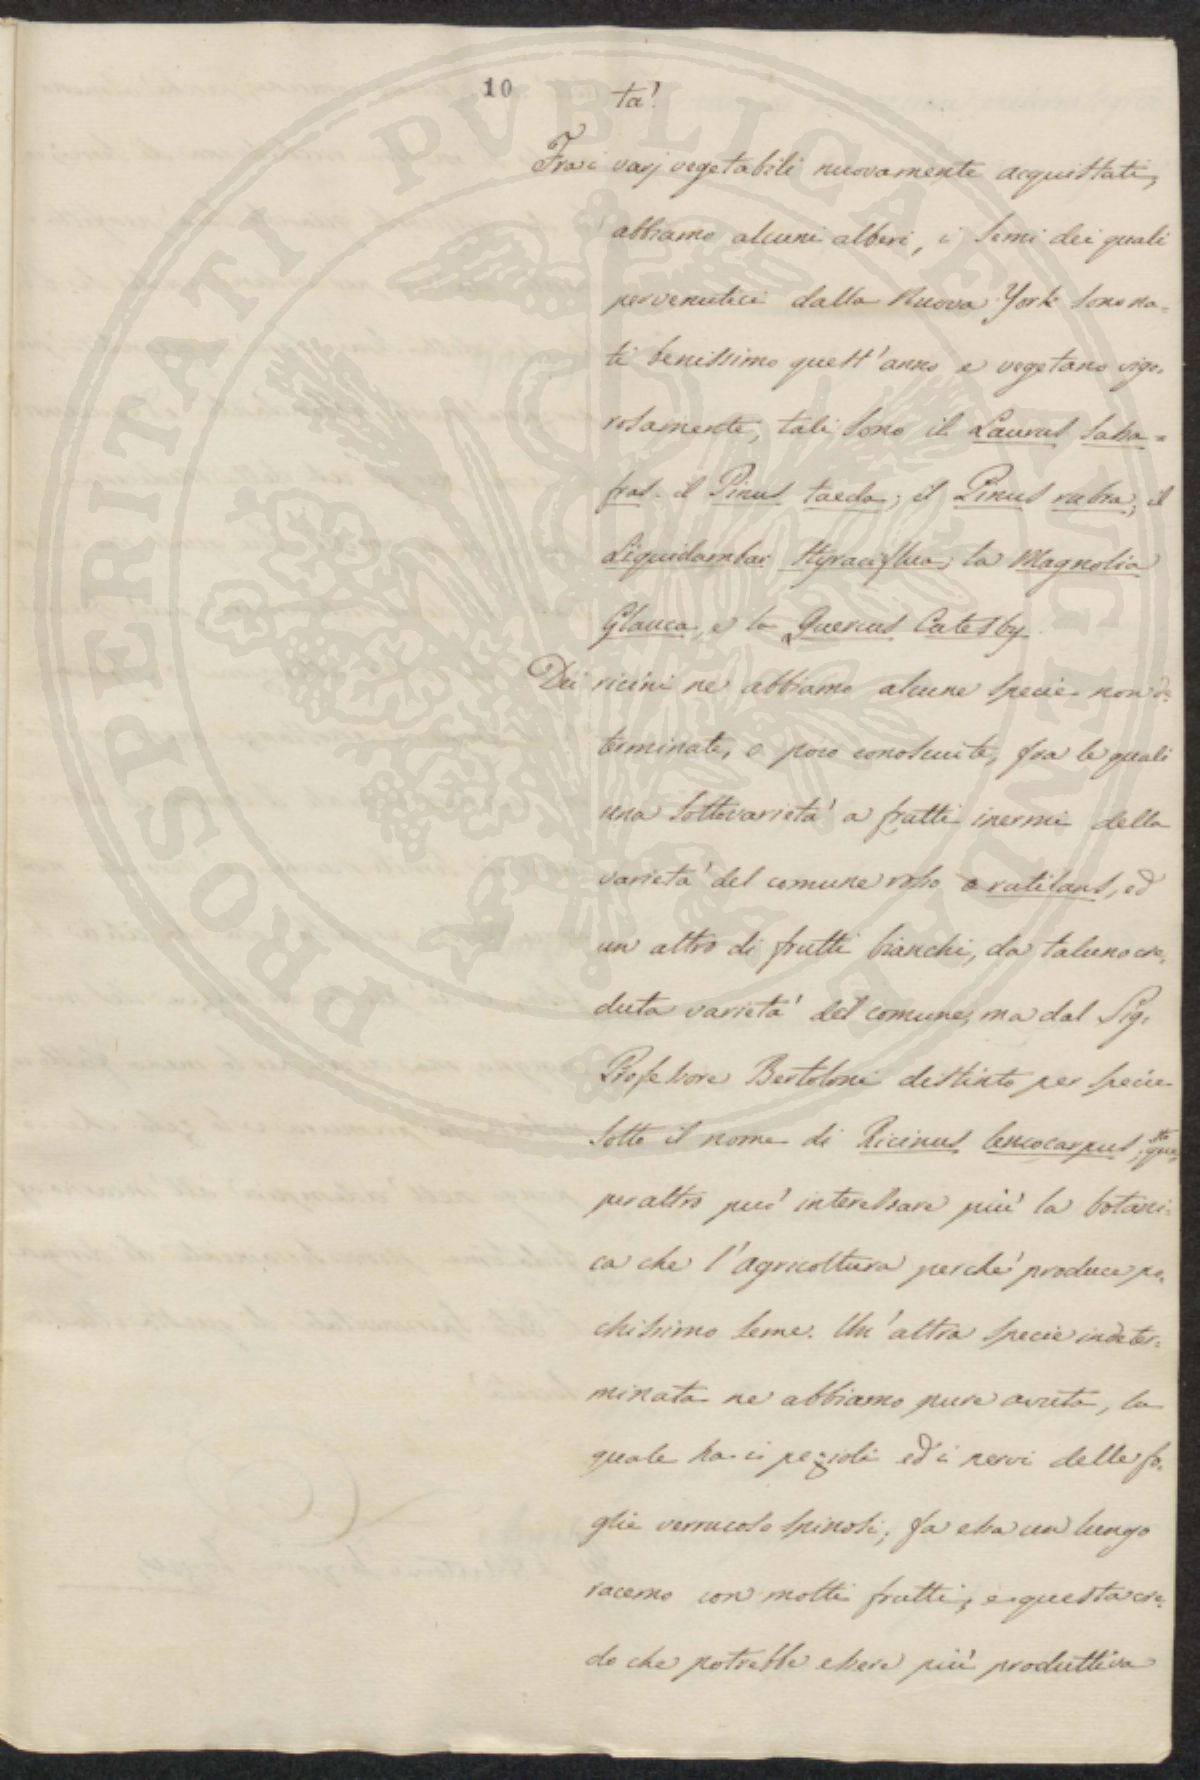 10
tà.
Fra i varj vegetabili nuovamente acquistati,
abbiamo alcuni alberi, i semi dei quali
pervenutici dalla Nuova York sono na-
ti benissimo quest'anno e vegetano vigo-
rosamente, tali sono il Laurus Sassa=
fras. il Pinus taeda; il Pinus rubra; il
Liquidambar Styraciflua; la Magnolia
Glauca, e la Quercus Catesby.
Dei ricini ne abbiamo alcune specie non de-
terminate, o poco conosciute, fra le quali
una sottovarietà a frutti inermi della
varietà del comune rosso o rutilans, ed
un altro di frutti bianchi, da taluno cre-
duta varietà del comune, ma dal Sig.
Professore Bertoloni distinto per specie
sotto il nome di Ricinus leucocarpus; questo
per altro può interessare più la botani-
ca che l'agricoltura perchè produce po-
chissimo seme. Un'altra specie indeter-
minata ne abbiamo pure avuta, la
quale ha i pezioli ed i nervi delle fo-
glie verrucoso spinosi; fa essa un lungo
racemo con molti frutti, e questa cre-
do che potrebbe essere più produttiva
PROSPERITATI PVBLICAE AVGENDAE